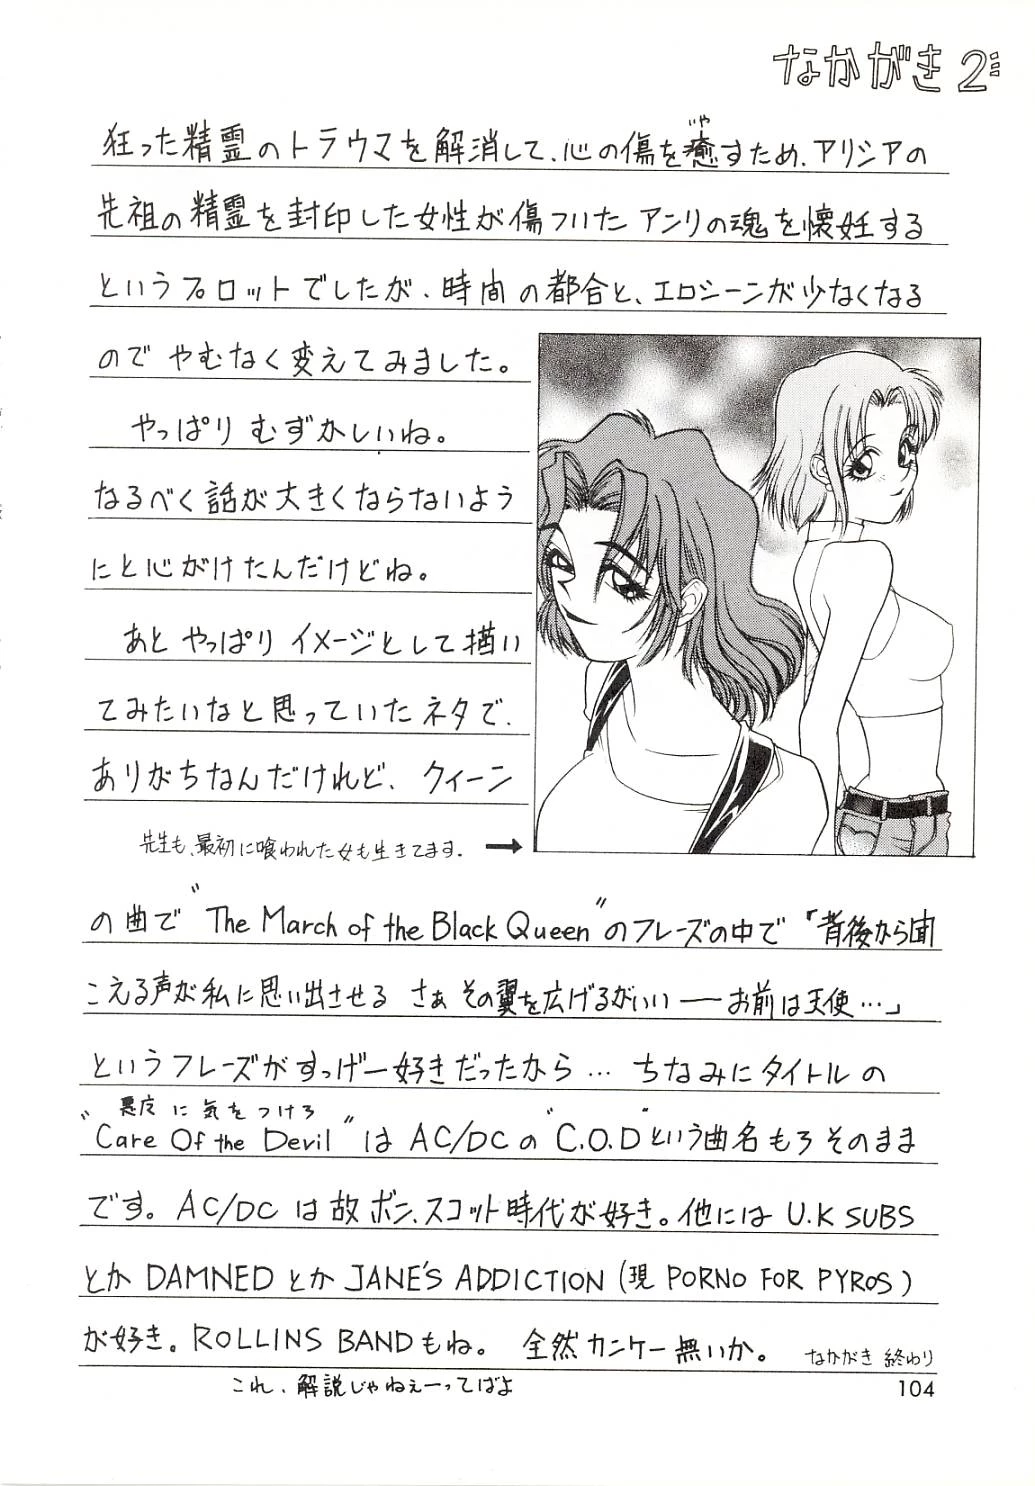 なかがき2
狂った精霊のトラウマを解消して、心の傷を癒すため、アリシアの
先祖の精霊を封印した女性が傷ついたアンリの魂を懐妊する
というプロットでしたが、時間の都合と、エロシーンが少なくなる
のでやむなく変えてみました。
やっぱりむずかしいね。
なるべく話が大きくならないよう
にと心がけたんだけどね。
あとやっぱりイメージとして描い
てみたいなと思っていたネタで、
ありがちなんだけれど、クィーン
先生も、最初に喰われた女も生きてます。→
の曲で"The March of the Black Queen"のフレーズの中で「背後から聞
こえる声が私に思い出させる さぁ その翼を広げるがいい——お前は天使…」
というフレーズがすっげー好きだったから… ちなみにタイトルの
悪魔に気をつけろ
"Care Of the Devil"は AC/DCの"C.O.D"という曲名もろそのまま
です。AC/DCは故ボン、スコット時代が好き。他には U.K SUBS
とか DAMNEDとか JANE'S ADDICTION (現 PORNO FOR PYROS)
が好き。ROLLINS BANDもね。 全然カンケー無いか。 なかがき 終わり
これ、解説じゃねぇーってばよ
104